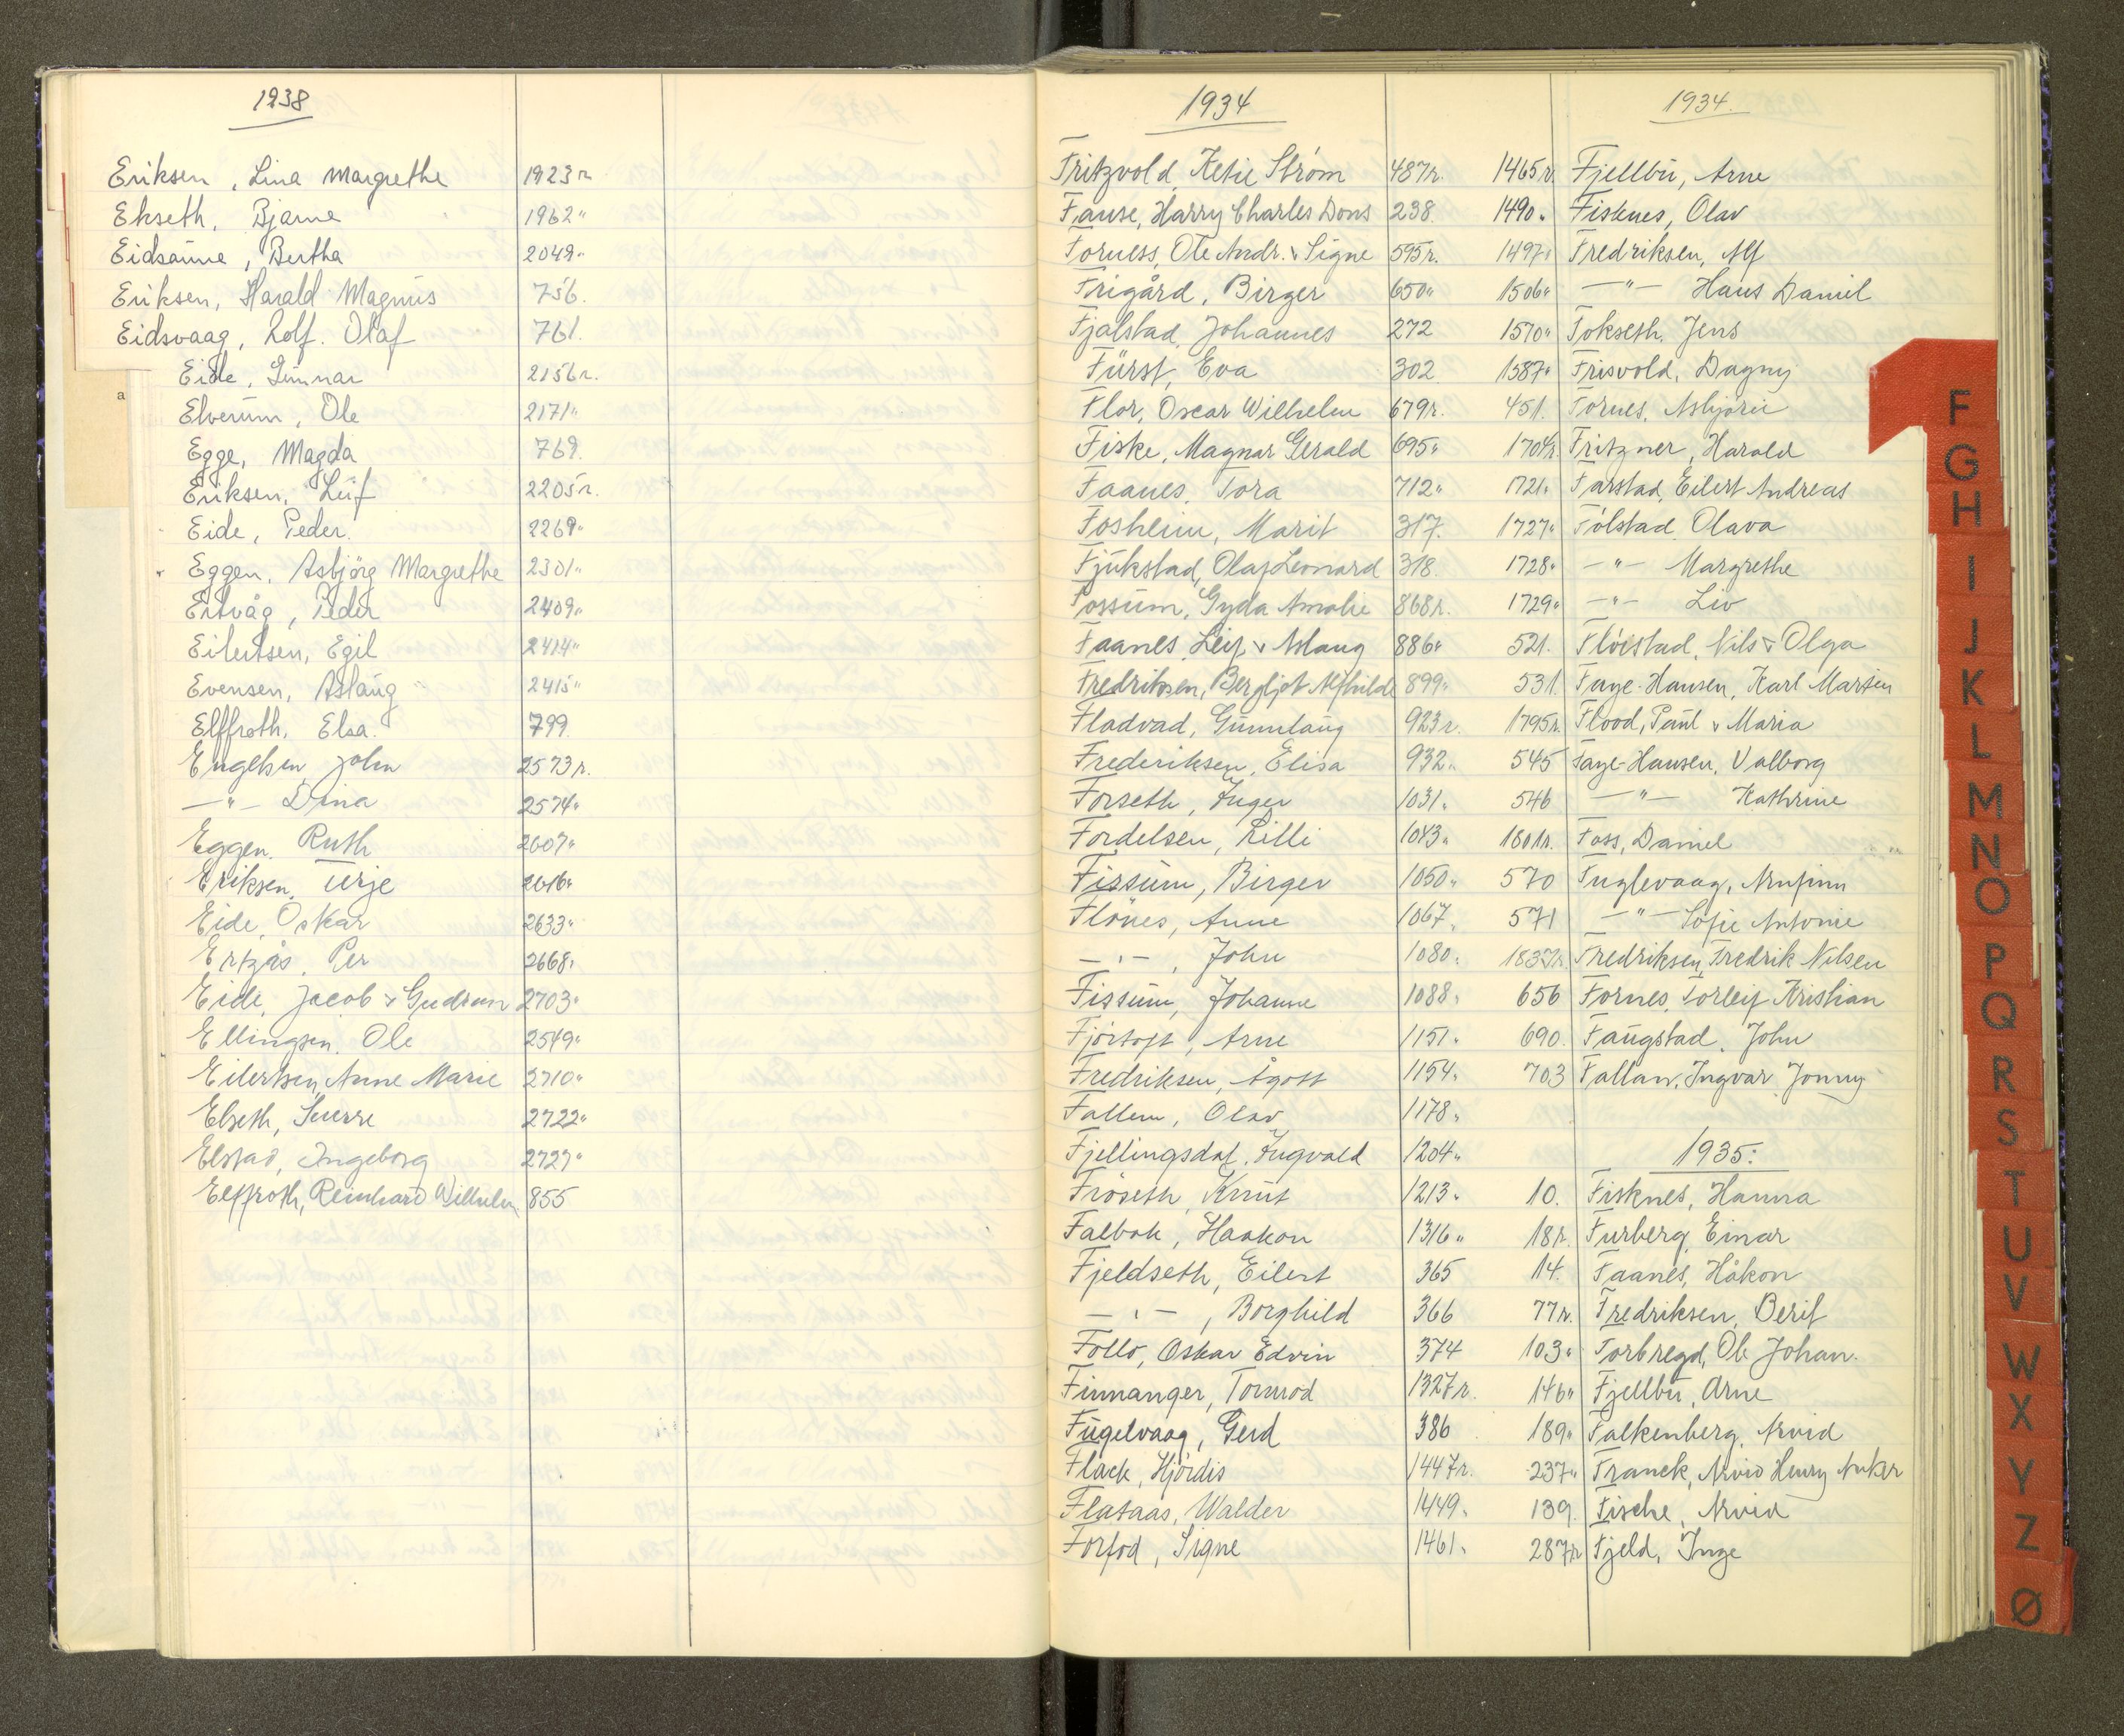 1938
Eriksen, Lina Margrethe 1923 r.
Ekseth, Bjarne 1962 "
Eidsaune, Bertha 2049 "
Eriksen, Harald Magnus 756.
Eidsvaag, Rolf. Olaf 761.
Eide, Gunnar 2156 r.
Elverum, Ole 2171 "
Egge, Magda 769.
Eriksen, Leif 2205 r.
Eide, Peder. 2269 "
Eggen, Asbjörg Margrethe 2301 "
Eitvåg, Peder 2409 "
Eilertsen, Egil 2414 "
Evensen, Aslaug 2415 "
Elffroth, Elsa. 799.
Engelsen John 2573 r.
—"— Dina 2574 "
Eggen. Ruth 2607 "
Eriksen. Terje 2616 "
Eide, Oskar 2633 "
Ertzås, Per 2668 "
Eide, Jacob & Gudrun 2703 "
Ellingsen. Ole 2549 "
Eilertsen, Anne Marie 2710 "
Elseth, Sverre 2722 "
Elstad, Ingeborg 2727 "
Elffroth, Reinhard Wilhelm 855
a
1934
Fritzvold, Ketie Strøm 487 r.
Fause, Harry Charles Dons 238
Forness, Ole Andr. & Signe 595 r.
Frigård, Birger 650 "
Fjalstad, Johannes 272
Fürst, Eva 302
Flor, Oscar Wilhelm 679 r.
Fiske, Magnar Gerald 695 "
Faanes, Tora 712 "
Fosheim, Marit 317.
Fjukstad, Olaf Leonard 318
Fossum, Gyda Amalie 868 r.
Faanes, Leif & Aslaug 886 "
Fredriksen, Bergljot Alfhilde 899 "
Fladvad, Gunnlaug 923 r.
Frederiksen, Elisa 932 "
Forseth, Inger 1031 "
Fordelsen, Lilli 1043 "
Fissum, Birger 1050 "
Flönes, Anne 1067 "
—"—, John 1080 "
Fissum, Johanne 1088 "
Fjörtoft, Arne 1151 "
Fredriksen, Ågott 1154 "
Fallem, Olav 1178 "
Fjellingsdal, Ingvald 1204 "
Fröseth, Knut 1213 "
Falbak, Haakon 1316 "
Fjeldseth, Eilert 365
—"—, Borghild 366
Follo, Oskar Edvin 374
Finnanger, Tormod 1327 r.
Fugelvaag, Gerd 386
Flack, Hjördis 1447 r.
Flataas, Walder 1449 "
Forfod, Signe 1461 "
1934.
1465 r. Fjellbu, Arne
1490 " Fisknes, Olav
1497 " Fredriksen, Alf
1506 " —"— Hans Daniel
1570 " Fokseth, Jens
1587 " Frisvold, Dagny
451. Fornes, Asbjörn
1704 r. Fritzner, Harald
1721 " Farstad, Eilert Andreas
1727 " Følstad, Olava
1728 " —"— Margrethe
1729 " —"— Liv
521. Fløistad, Nils & Olga
531. Faye-Hansen, Karl Martin
1795 r. Flood, Paul & Maria
545 Faye-Hansen, Valborg
546 —"— Kathrine
1801 r. Foss, Daniel
570 Fuglevaag, Arnfinn
571 —"— Sofie Antonie
1837 r. Fredriksen, Fredrik Nilsen
656 Fornes, Torleif Kristian
690. Faugstad, John
703 Fallan, Ingvar Jonny
1935:
10. Fisknes, Hanna
18 r. Furberg, Einar
14. Faanes, Håkon
77 r. Fredriksen, Berit
103 " Forbregd, Ole Johan.
146 " Fjellbu, Arne
189 " Falkenberg, Arvid
237 " Franck, Arvid Henry Anker
139. Fische, Arvid
287 r. Fjeld, Inge
F
G
H
I
J
K
L
M
N
O
P
Q
R
S
T
U
V
W
X
Y
Z
Ø